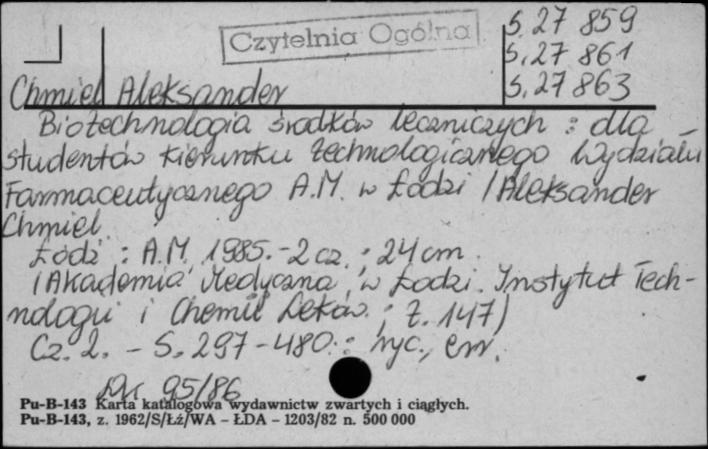 Czytelnia Ogólna
S. 27 859
S. 27 861
S. 27 863
Chmiel Aleksander
Biotechnologia środków leczniczych : dla
studentów kierunku technologicznego Wydziału
Farmaceutycznego A.M. w Łodzi / Aleksander
Chmiel.
Łódź : A.M. 1985. - 2 cz. ; 24 cm.
(Akademia Medyczna w Łodzi. Instytut Tech-
nologii i Chemii Leków ; z. 147)
Cz. 2. - S. 297-480. : ryc., err.
95/86
Pu-B-143 Karta katalogowa wydawnictw zwartych i ciągłych.
Pu-B-143, z. 1962/S/Łź/WA - ŁDA - 1203/82 n. 500 000